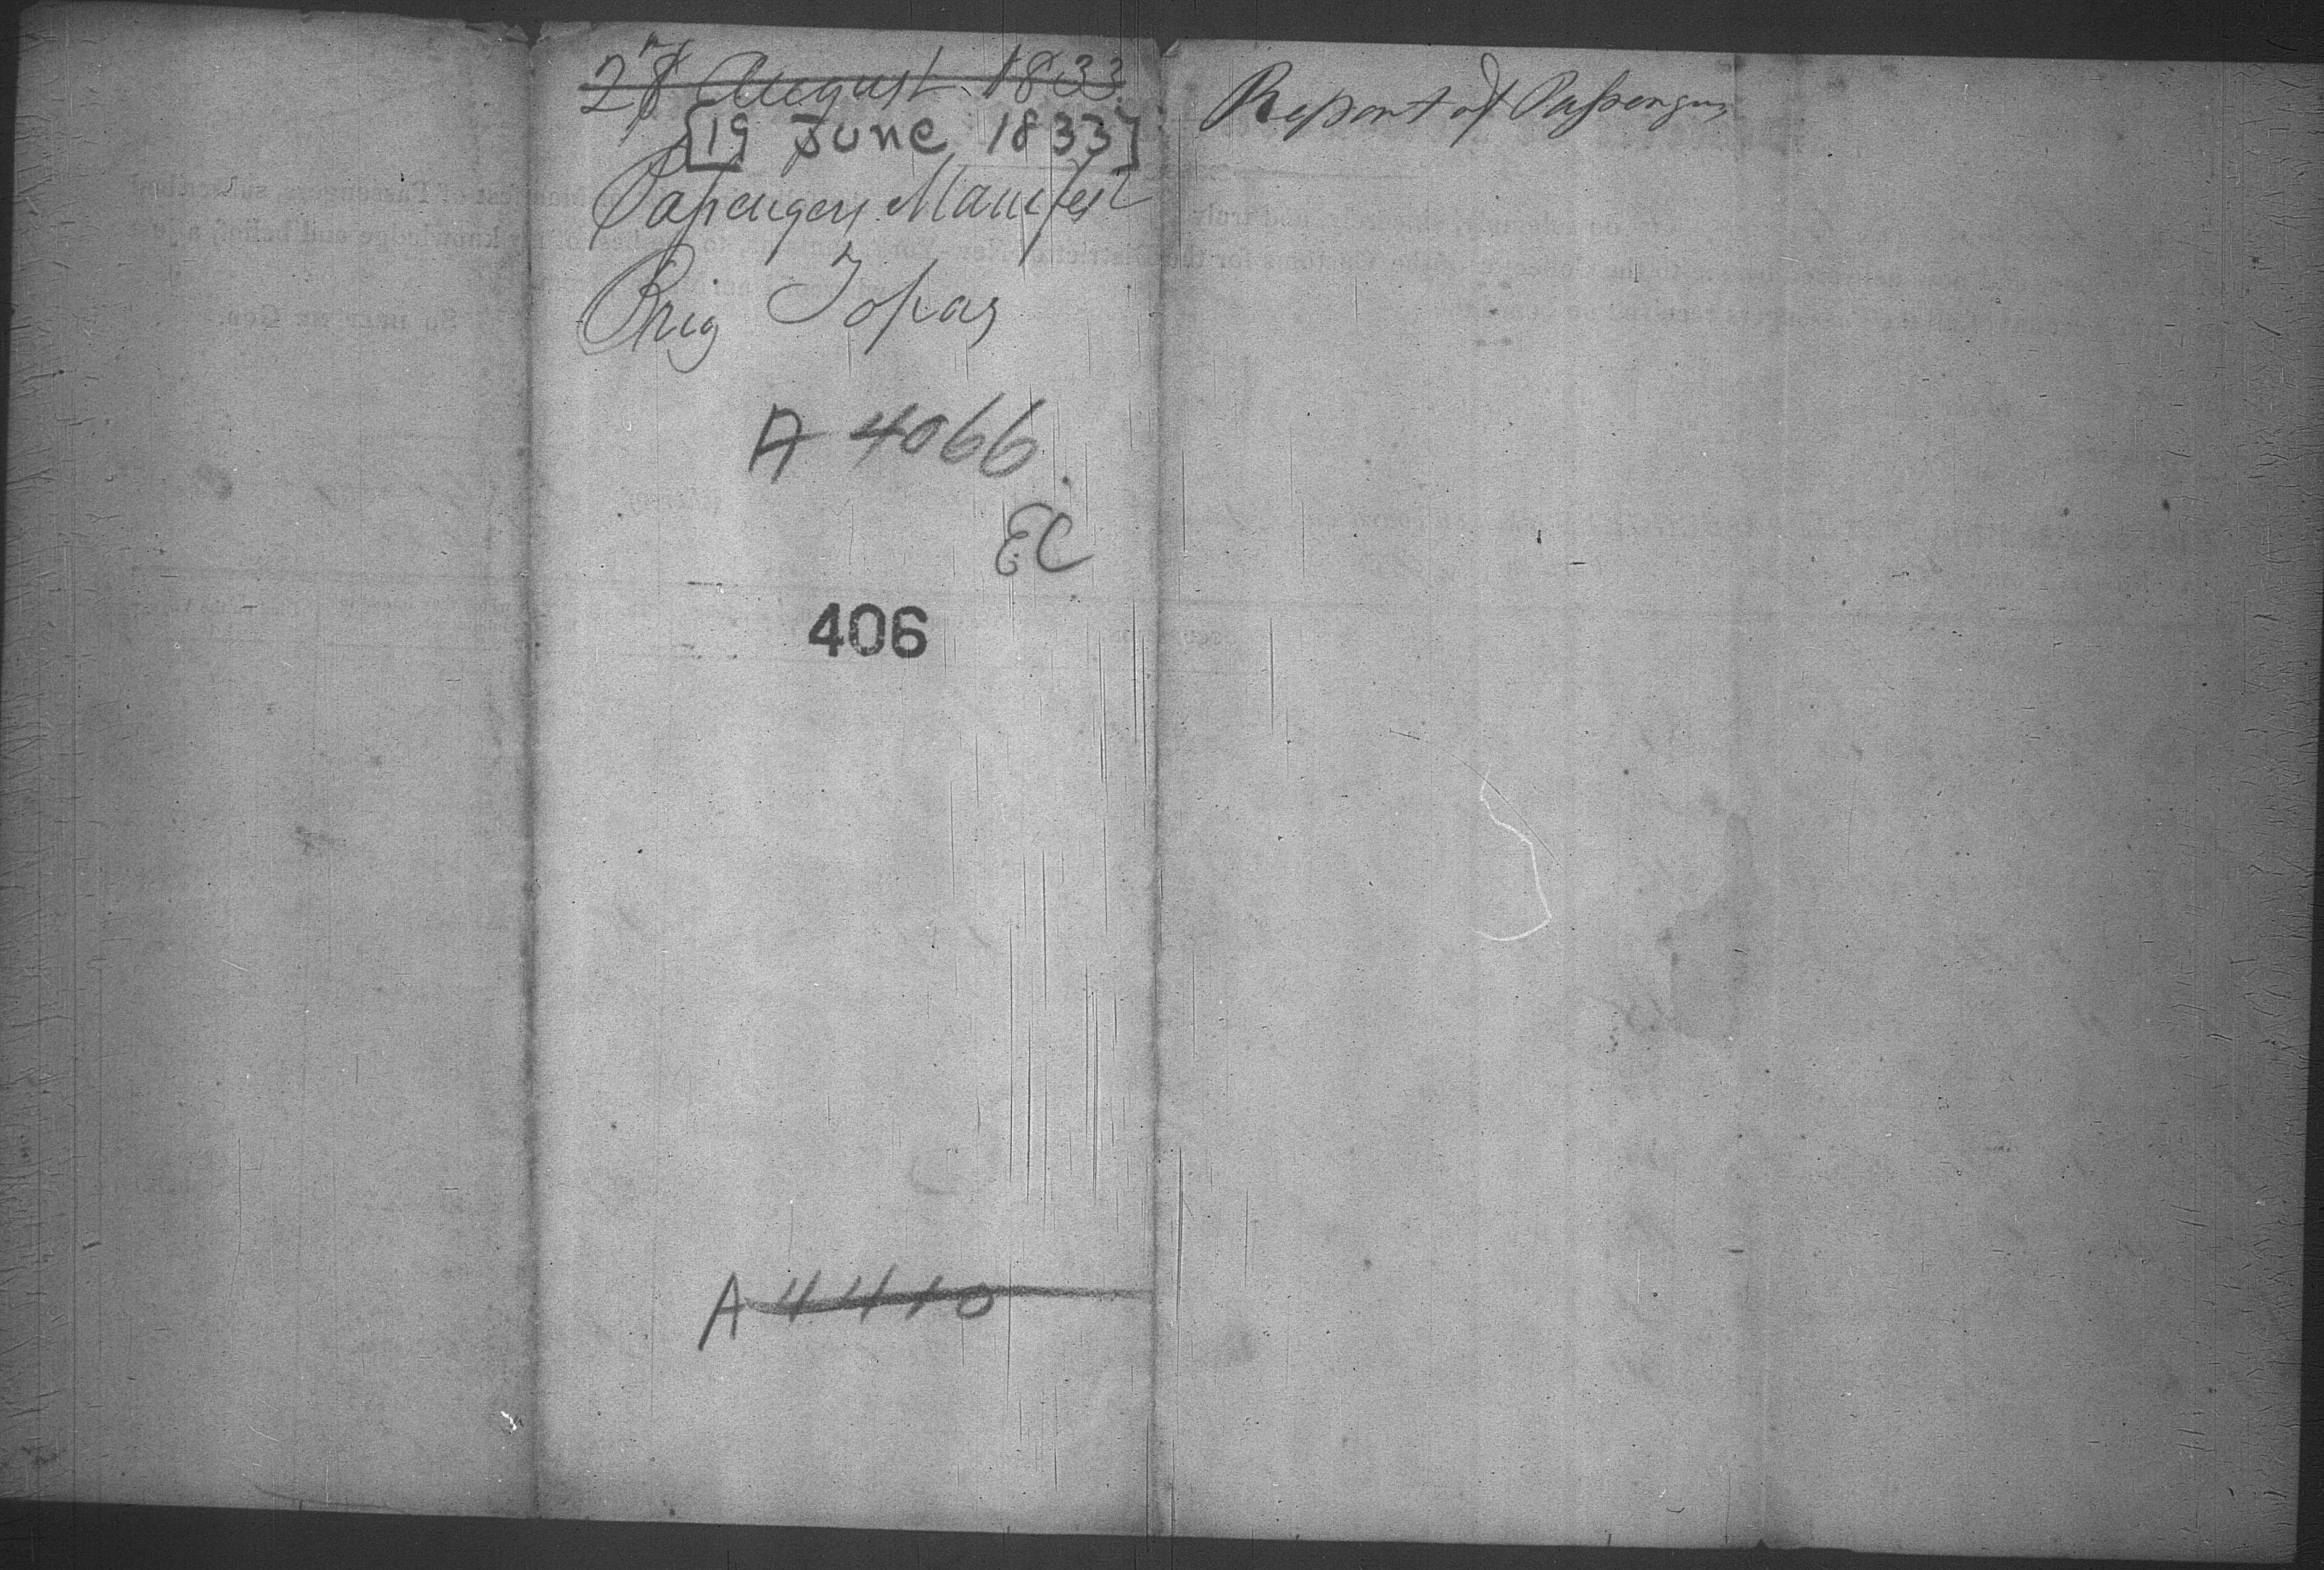 27 August 1833
[19 June 1833]
Passengers Manifest
Brig Topaz
A 4066
EC
406
A 4410
Report of Passengers